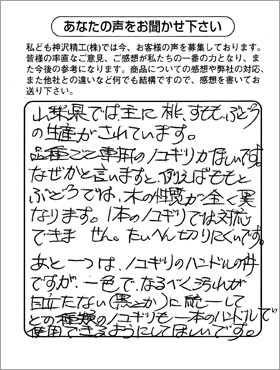 あなたの声をお聞かせ下さい
私ども神沢精工(株)では今、お客様の声を募集しております。
皆様の率直なご意見、ご感想が私たちの一番の力となり、ま
た今後の参考になります。商品についての感想や弊社の対応、
また他社との違いなど何でも結構ですので、感想を書いてお
送り下さい。
山梨県では主に桃、すもも、ぶどう
の生産がされています。
品種ごと専用のノコギリがほしいです。
なぜかと言いますと、例えばももと
ぶどうでは、木の性質が全く異
なります。1本のノコギリでは対応
できません。たいへん切りにくいです。
あと一つは、ノコギリのハンドルの件
ですが、一色で、なるべくよごれが
目立たない(黒とか)に統一して
どの種類のノコギリも一本のハンドルで
使用できるようにしてほしいです。